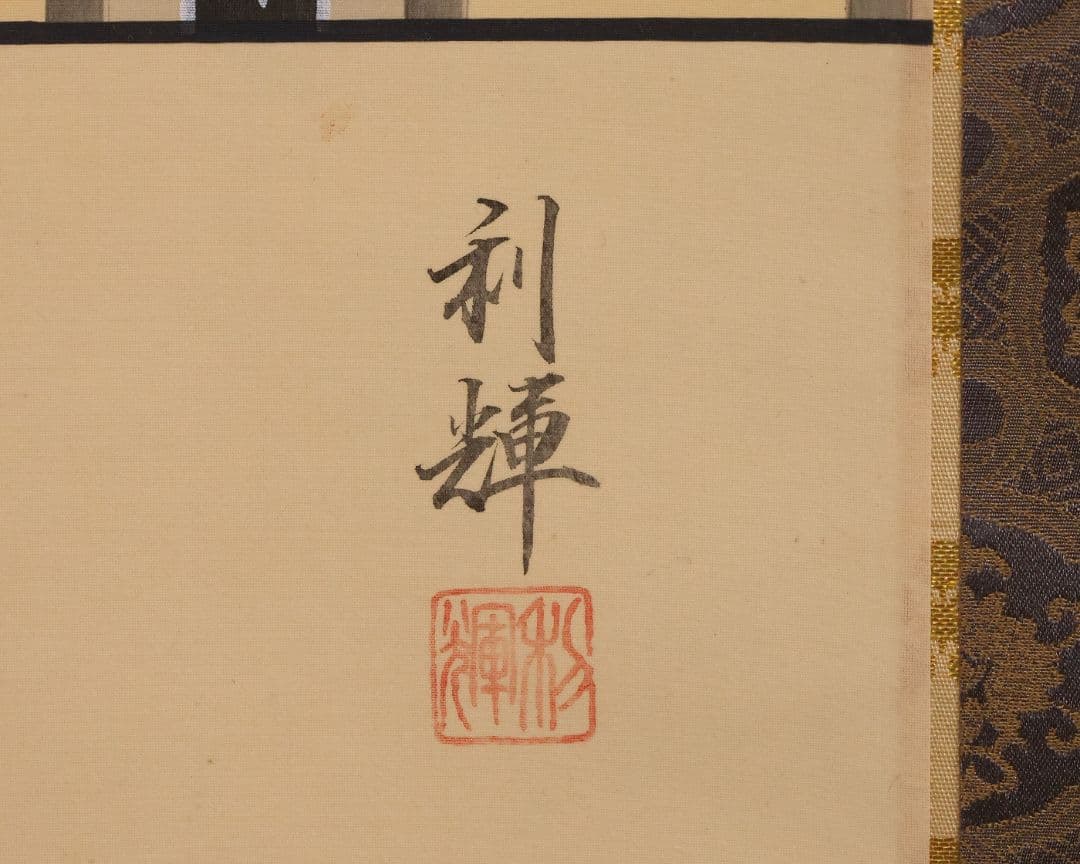 利輝
利輝